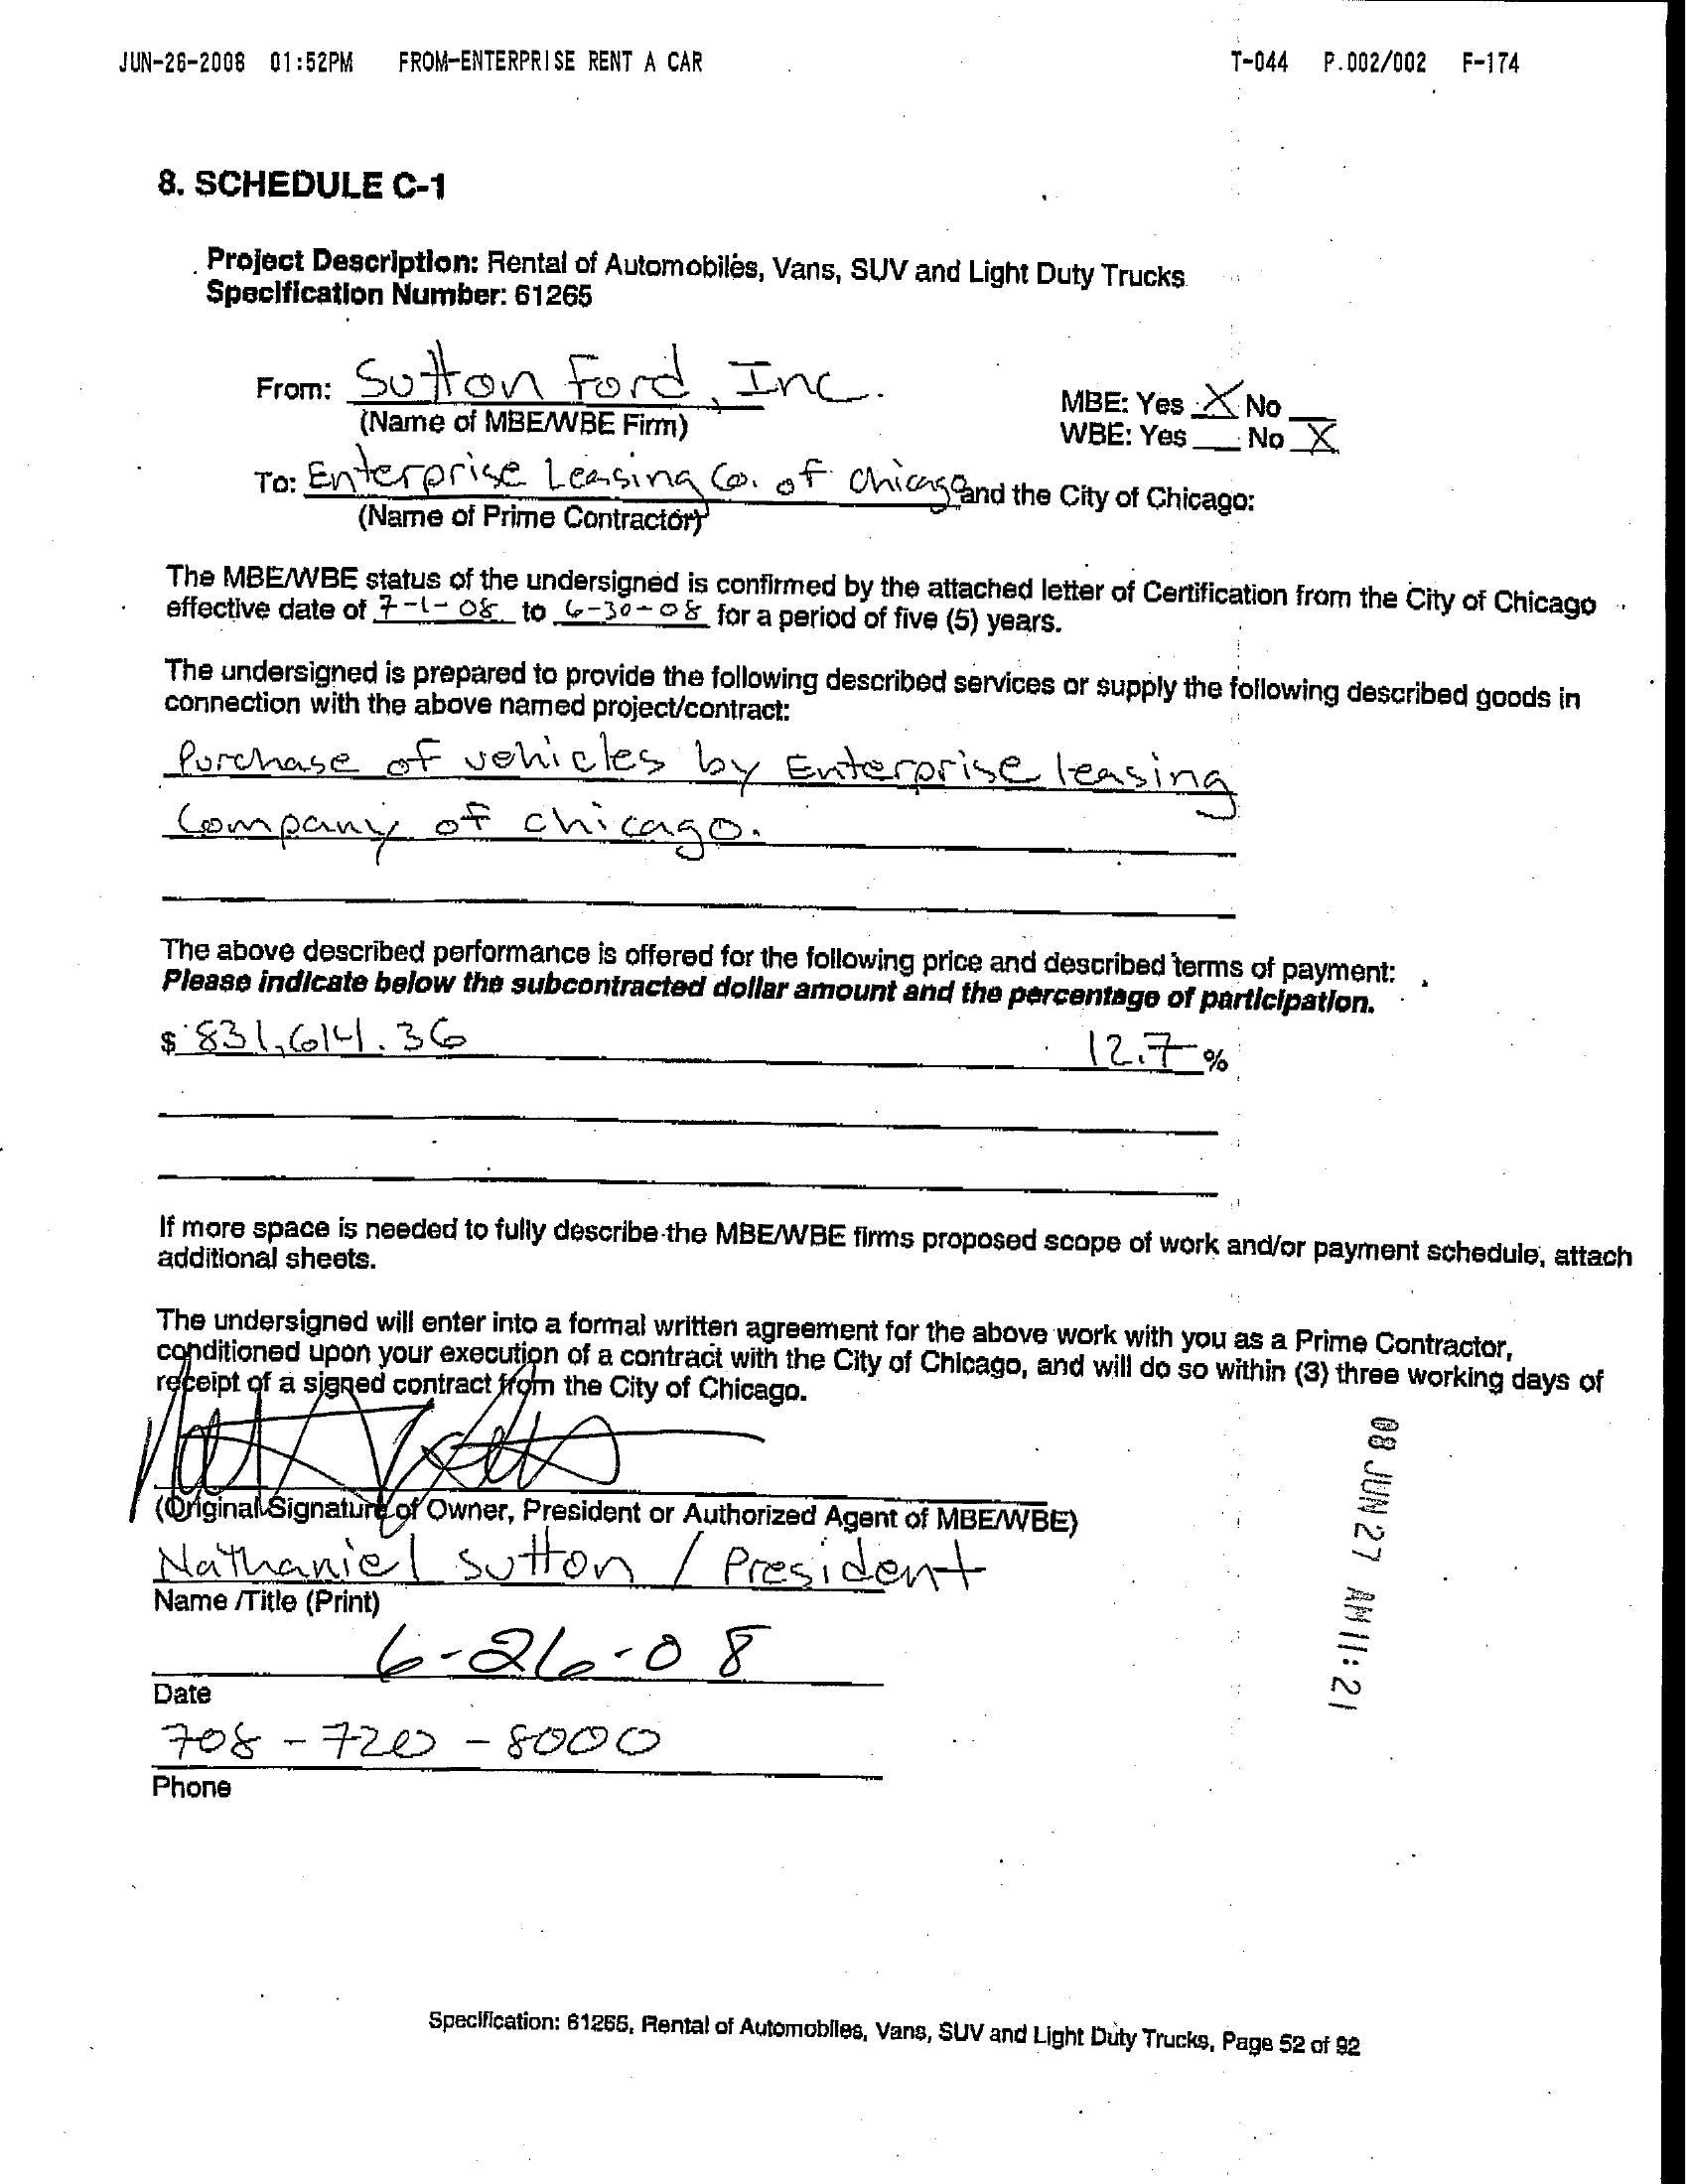 JUN-26-2008 01:52PM FROM-ENTERPRISE RENT A CAR T-044 P.002/002 F-174
8. SCHEDULE C-1
Project Description: Rental of Automobiles, Vans, SUV and Light Duty Trucks
Specification Number: 61265
From: Sutton Ford, Inc.
(Name of MBE/WBE Firm)
MBE: Yes X No
WBE: Yes No X
To: Enterprise Leasing Co. of Chicago and the City of Chicago:
(Name of Prime Contractor)
The MBE/WBE status of the undersigned is confirmed by the attached letter of Certification from the City of Chicago
effective date of 7-1-08 to 6-30-08 for a period of five (5) years.
The undersigned is prepared to provide the following described services or supply the following described goods in
connection with the above named project/contract:
Purchase of vehicles by Enterprise leasing
Company of chicago.
The above described performance is offered for the following price and described terms of payment:
Please indicate below the subcontracted dollar amount and the percentage of participation.
$ 831,614.36 12.7 %
If more space is needed to fully describe the MBE/WBE firms proposed scope of work and/or payment schedule, attach
additional sheets.
The undersigned will enter into a formal written agreement for the above work with you as a Prime Contractor,
conditioned upon your execution of a contract with the City of Chicago, and will do so within (3) three working days of
receipt of a signed contract from the City of Chicago.
(Original Signature of Owner, President or Authorized Agent of MBE/WBE)
Nathaniel Sutton / President
Name /Title (Print)
6-26-08
Date
708-720-8000
Phone
08 JUN 27 AM 11:21
Specification: 61265, Rental of Automobiles, Vans, SUV and Light Duty Trucks, Page 52 of 92